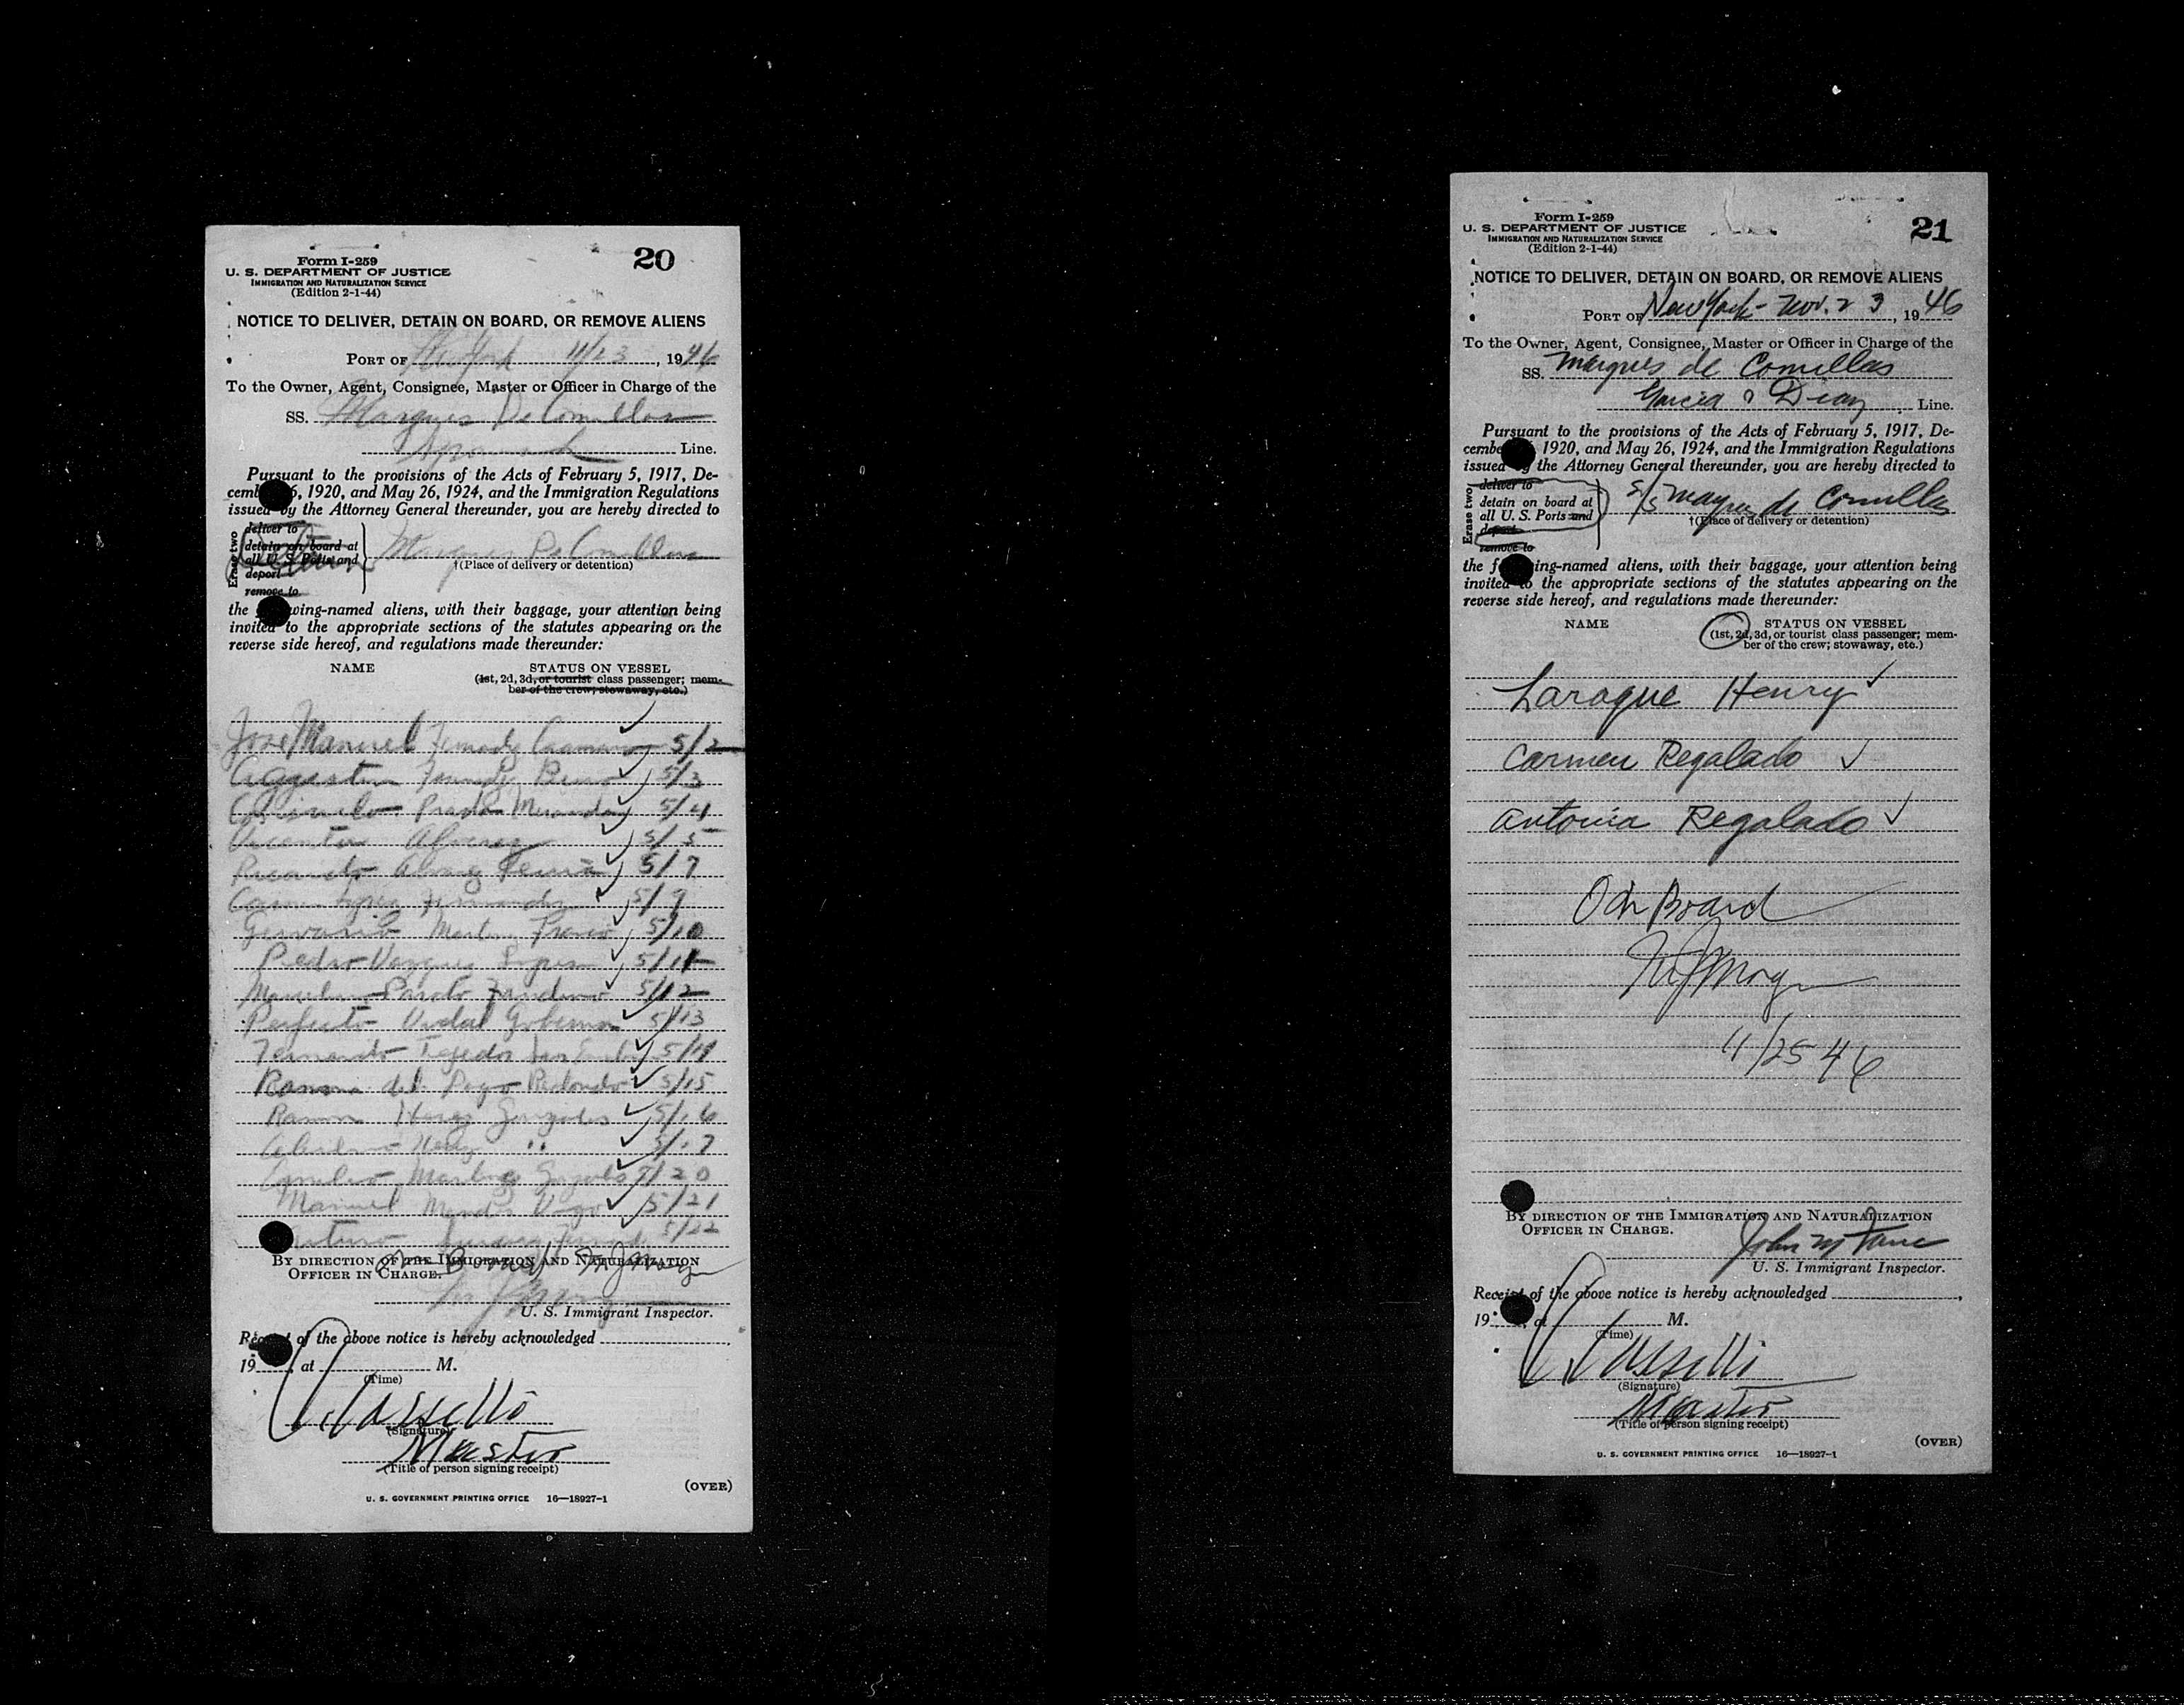 Form I-259
U. S. DEPARTMENT OF JUSTICE
IMMIGRATION AND NATURALIZATION SERVICE
(Edition 2-1-44)
20
NOTICE TO DELIVER, DETAIN ON BOARD, OR REMOVE ALIENS
PORT OF New York 11/23, 1946
To the Owner, Agent, Consignee, Master or Officer in Charge of the
SS. Marques De Comillas
Spanish Line.
Pursuant to the provisions of the Acts of February 5, 1917, De-
cem 6, 1920, and May 26, 1924, and the Immigration Regulations
issued by the Attorney General thereunder, you are hereby directed to
Erase two
deliver to
detain on board at
all U. S. Ports and
deport
remove to
Marques De Comillas
†(Place of delivery or detention)
the wing-named aliens, with their baggage, your attention being
invited to the appropriate sections of the statutes appearing on the
reverse side hereof, and regulations made thereunder:
NAME STATUS ON VESSEL
(1st, 2d, 3d, or tourist class passenger; mem-
ber of the crew; stowaway, etc.)
Jose Manuel 5/2
5/3
Prado 5/4
Vicente Alvarez 5/5
Ricardo Alvarez 5/7
5/9
Gervasio Martinez 5/10
Pedro Vazquez 5/11
Pardo 5/12
Perfecto Vidal 5/13
Fernando Tejedor 5/14
Redondo 5/15
Ramon Gonzales 5/16
" 5/17
Emilio Martinez Gonzales 5/20
Manuel Mendez Vigo 5/21
5/22
On Board
BY DIRECTION OF THE IMMIGRATION AND NATURALIZATION
OFFICER IN CHARGE.
U. S. Immigrant Inspector.
Receipt of the above notice is hereby acknowledged
19 , at M.
(Time)
(Signature)
Master
(Title of person signing receipt)
(OVER)
U. S. GOVERNMENT PRINTING OFFICE 16—18927-1
Form I-259
U. S. DEPARTMENT OF JUSTICE
IMMIGRATION AND NATURALIZATION SERVICE
(Edition 2-1-44)
21
NOTICE TO DELIVER, DETAIN ON BOARD, OR REMOVE ALIENS
PORT OF New York - Nov. 23, 1946
To the Owner, Agent, Consignee, Master or Officer in Charge of the
SS. Marques de Comillas
Garcia & Diaz Line.
Pursuant to the provisions of the Acts of February 5, 1917, De-
cembe 1920, and May 26, 1924, and the Immigration Regulations
issued the Attorney General thereunder, you are hereby directed to
Erase two
deliver to
detain on board at
all U. S. Ports and
deport
remove to
S/S Marques de Comillas
†(Place of delivery or detention)
the f ing-named aliens, with their baggage, your attention being
invited to the appropriate sections of the statutes appearing on the
reverse side hereof, and regulations made thereunder:
NAME STATUS ON VESSEL
(1st, 2d, 3d, or tourist class passenger; mem-
ber of the crew; stowaway, etc.)
Laraque Henry ✓
Carmen Regalado ✓
Antonia Regalado ✓
On Board
11/25 46
BY DIRECTION OF THE IMMIGRATION AND NATURALIZATION
OFFICER IN CHARGE.
U. S. Immigrant Inspector.
Receipt of the above notice is hereby acknowledged
19 , at M.
(Time)
(Signature)
Master
(Title of person signing receipt)
(OVER)
U. S. GOVERNMENT PRINTING OFFICE 16—18927-1